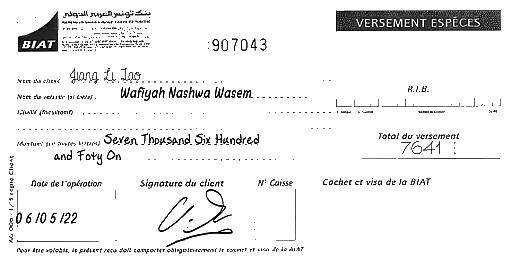 بنك تونس العربي الدولي
BIAT
:907043
VERSEMENT ESPÈCES
Nom du client Jiang Li Tao
Nom du verseur (si tiers) Wafiyah Nashwa Wasem
R.I.B.
Libellé (facultatif)
Montant (en toutes lettres) Seven Thousand Six Hundred
and Foty On
Total du versement
7641
Date de l'opération Signature du client N° Caisse Cachet et visa de la BIAT
06/05/22
Pour être valable, le présent reçu doit comporter obligatoirement le cachet et visa de la BIAT